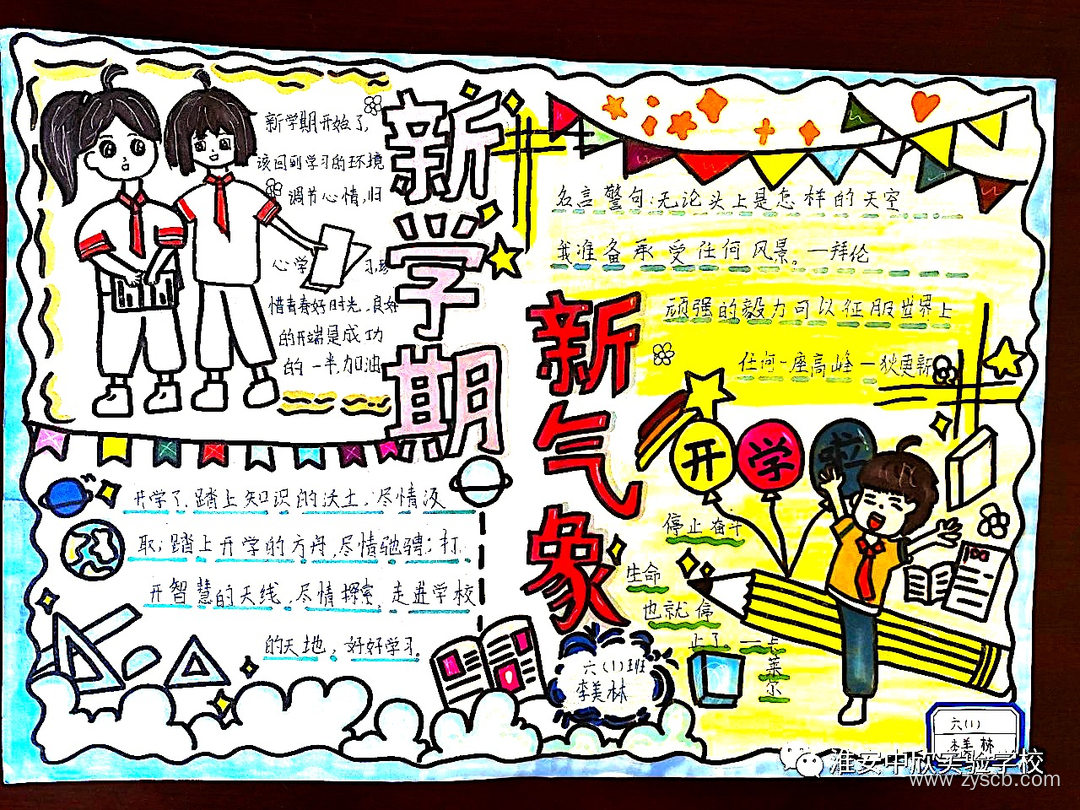 新学期
新气象
新学期开始了,
该回到学习的环境
调节心情,归
心学习,珍
惜青春好时光,良好
的开端是成功
的一半,加油
名言警句:无论头上是怎样的天空
我准备承受任何风景。—拜伦
顽强的毅力可以征服世界上
任何一座高峰—狄更斯
开学
停止奋斗
生命
也就停
止了—卡
莱尔
开学了,踏上知识的沃土,尽情汲
取;踏上开学的方舟,尽情驰骋;打
开智慧的天线,尽情探索,走进学校
的天地,好好学习。
六(1)班
李美林
六(1)
李美林
淮安中欣实验学校
www.zyscb.com